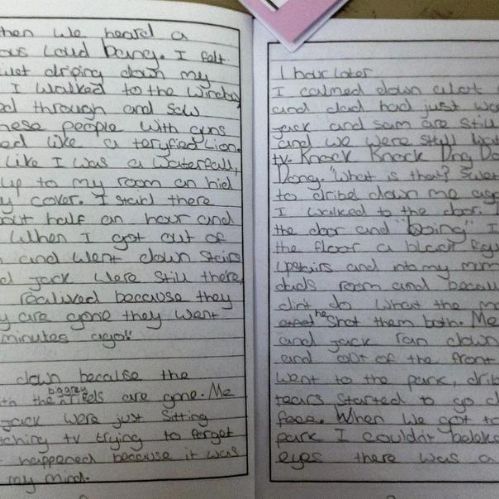 then we heard a
ous loud bang. I felt
ust driping down my
I walked to the window
ed through and saw
hese people with guns
ed like a teryfied lion.
like I was a waterfall,
up to my room an hid
y cover. I staid there
bout half an hour and
When I got out of
and went down stairs
d jack were still there
realived because they
y are gone they went
minutes ago!"
down because the
ith the rifels are gone. Me
jack were just sitting
ching tv trying to forget
happened because it was
my mind.
1 hour later
I calmed down alot
and dad had just we
jack and sam are still
and we were still wa
tv. Knock Knock Ding D
Dong. "What is that? Swea
to dribel down me ag
I walked to the door.
the door and "boing" I
the floor a black figu
upstairs and into my mum
dads room and becau
dint do what the m
he shot them both. Me
and jack ran down
and out of the front
went to the park, drib
tears started to go d
face. When we got to
park I couldnt beleive
eyes there was a